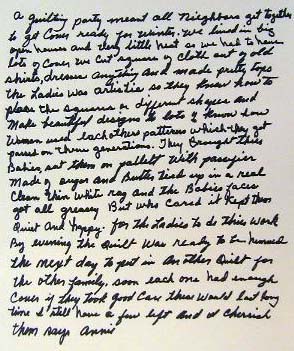 A quilting party meant all Neighbors get together
to get Cover ready for Winter. We lived in big
open houses and very little heat so we had to have
lots of Cover. We Cut square of Cloth out of old
shirts, dresses anything and made pretty tops
the Ladies was artistic so they knew how to
place the squares in different shapes and
Make beautiful designs to lots I know how
Women used each others patterns which they got
passed on through generations. They Brought their
Babies, sat them on pallets With pacifier
Made of sugar and Butter tied up in a real
Clean thin white rag and the Babies faces
got all greasy But who cared it Kept them
Quiet and happy. for the Ladies to do this Work
By evening the Quilt Was ready to be hemmed
the next day to put in Another Quilt for
the other family, soon each one had enough
Cover if they took good Care these would last long
time I still have a few left and I Cherish
them says Annie